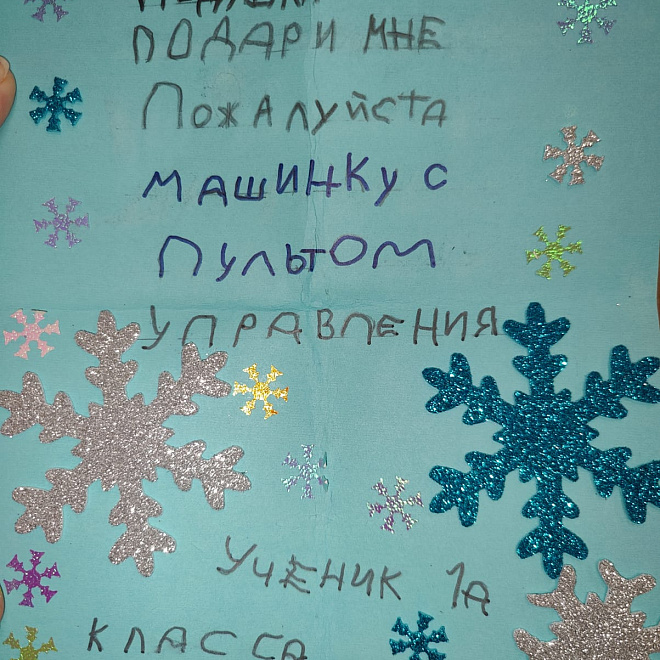 ПОДАРИ МНЕ
ПожАлуйстА
МАШИНКУ С
ПУЛЬТОМ
УПРАВЛЕНИЯ
УЧЕНИК 1А
КЛАССА